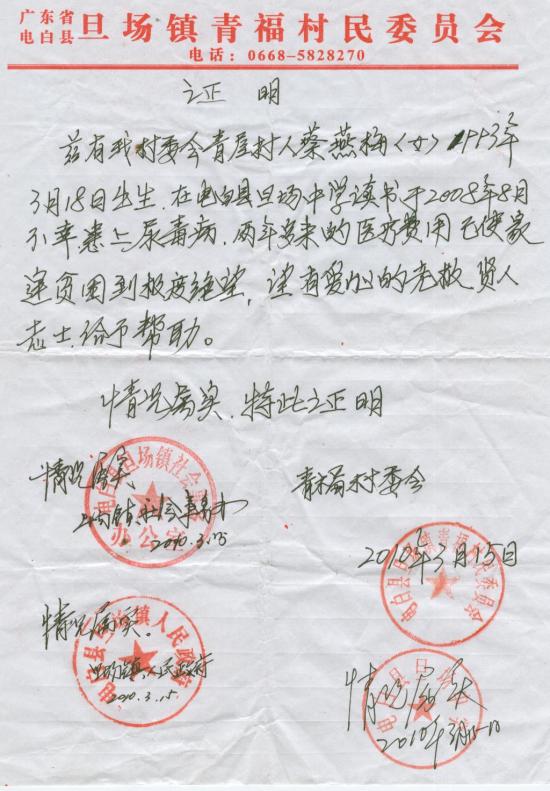 广东省
电白县旦场镇青福村民委员会
电话：0668-5828270
证明
兹有我村委会青屋村人蔡燕梅（女）1993年
3月18日出生，在电白县旦场中学读书于2008年8月
不幸患上尿毒病，两年多来的医疗费用已使家
庭贫困到极度绝望，望有爱心的 贤人
志士给予帮助。
情况属实，特此证明
情况属实
2010.3.15
办公室
青福村委会
2010年3月15日
情况属实。
旦场镇人民政府
2010.3.15
情况属实
2010年3月